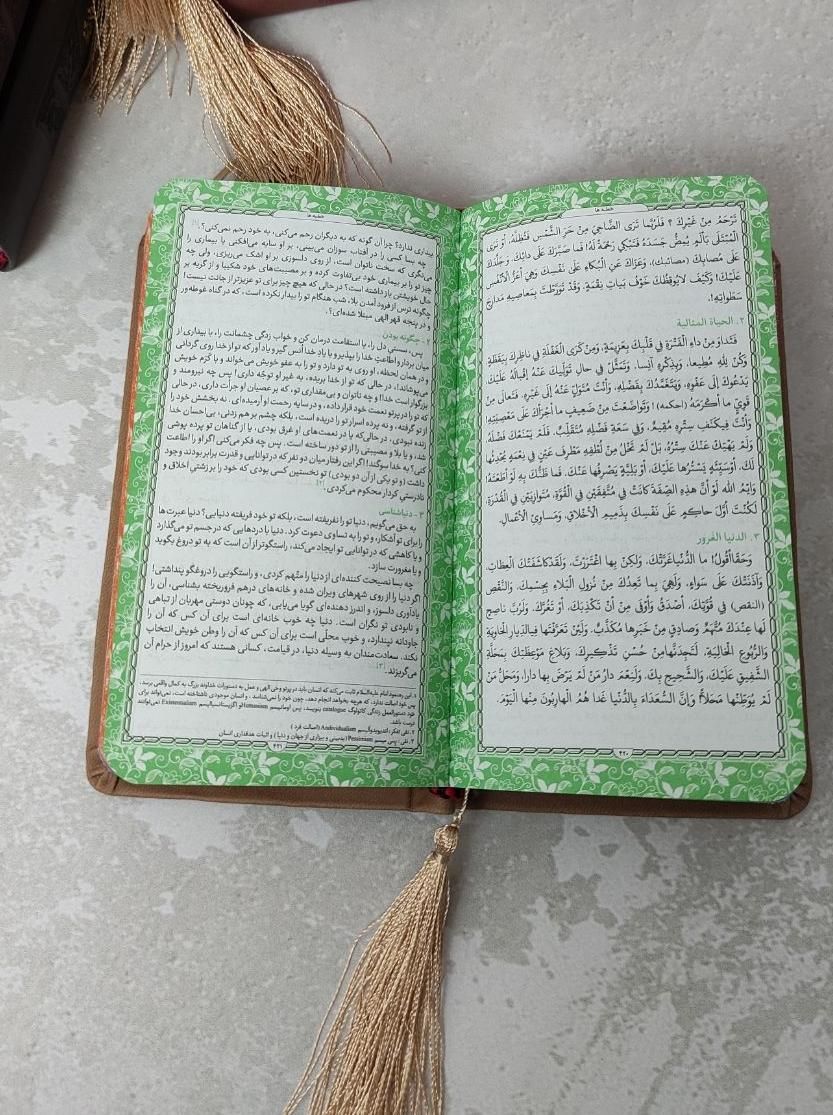 خطبه ها
تَرْحَمُ مِنْ غَيْرِكَ؟ فَلَرُبَّما تَرَى الضَّاحِيَ مِنْ حَرِّ الشَّمْسِ فَتُظِلُّهُ، أَوْ تَرَى
الْمُبْتَلَى بِأَلَمٍ يُمِضُّ جَسَدَهُ فَتَبْكِي رَحْمَةً لَهُ! فَما صَبَّرَكَ عَلَى دائِكَ، وَجَلَّدَكَ
عَلَى مُصابِكَ (مصائبك)، وَعَزّاكَ عَنِ الْبُكاءِ عَلَى نَفْسِكَ وَهِيَ أَعَزُّ الْأَنْفُسِ
عَلَيْكَ! وَكَيْفَ لايُوقِظُكَ خَوْفُ بَياتِ نِقْمَةٍ، وَقَدْ تَوَرَّطْتَ بِمَعاصِيهِ مَدارِجَ
سَطَواتِهِ!.
٢. الحياة المثالية
فَتَداوَ مِنْ داءِ الْفَتْرَةِ فِي قَلْبِكَ بِعَزِيمَةٍ، وَمِنْ كَرَى الْغَفْلَةِ فِي ناظِرِكَ بِيَقَظَةٍ
وَكُنْ لِلّهِ مُطِيعا، وَبِذِكْرِهِ آنِسا. وَتَمَثَّلْ فِي حالِ تَوَلِّيكَ عَنْهُ إِقْبالَهُ عَلَيْكَ
يَدْعُوكَ إِلَى عَفْوِهِ، وَيَتَغَمَّدُكَ بِفَضْلِهِ، وَأَنْتَ مُتَوَلٍّ عَنْهُ إِلَى غَيْرِهِ. فَتَعالَى مِنْ
قَوِيٍّ ما أَكْرَمَهُ (احكمه)! وَتَواضَعْتَ مِنْ ضَعِيفٍ ما أَجْرَأَكَ عَلَى مَعْصِيَتِهِ!
وَأَنْتَ فِيكَنَفِ سِتْرِهِ مُقِيمٌ، وَفِي سَعَةِ فَضْلِهِ مُتَقَلِّبٌ. فَلَمْ يَمْنَعْكَ فَضْلَهُ
وَلَمْ يَهْتِكْ عَنْكَ سِتْرَهُ، بَلْ لَمْ تَخْلُ مِنْ لُطْفِهِ مَطْرِفَ عَيْنٍ فِي نِعْمَةٍ يُحْدِثُها
لَكَ، أَوْسَيِّئَةٍ يَسْتُرُها عَلَيْكَ، أَوْ بَلِيَّةٍ يَصْرِفُها عَنْكَ. فَما ظَنُّكَ بِهِ لَوْ أَطَعْتَهُ!
وَايْمُ اللهِ لَوْ أَنَّ هذِهِ الصِّفَةَ كانَتْ فِي مُتَّفِقَيْنِ فِي الْقُوَّةِ، مُتَوازِيَيْنِ فِي الْقُدْرَةِ،
لَكُنْتَ أَوَّلَ حاكِمٍ عَلَى نَفْسِكَ بِذَمِيمِ الْأَخْلاقِ، وَمَساوِئِ الْأَعْمالِ.
٣. الدنيا الغرور
وَحَقّاأَقُولُ! ما الدُّنْياغَرَّتْكَ، وَلكِنْ بِها اغْتَرَرْتَ، وَلَقَدْكاشَفَتْكَ الْعِظاتِ،
وَآذَنَتْكَ عَلَى سَواءٍ، وَلَهِيَ بِما تَعِدُكَ مِنْ نُزُولِ الْبَلاءِ بِجِسْمِكَ، وَالنَّقْصِ
(النقض) فِي قُوَّتِكَ، أَصْدَقُ وَأَوْفَى مِنْ أَنْ تَكْذِبَكَ، أَوْ تَغُرَّكَ. وَلَرُبَّ ناصِحٍ
لَها عِنْدَكَ مُتَّهَمٌ وَصادِقٍ مِنْ خَبَرِها مُكَذَّبٌ. وَلَئِنْ تَعَرَّفْتَها فِيالدِّيارِ الْخاوِيَةِ
وَالرُّبُوعِ الْخالِيَةِ، لَتَجِدَنَّهامِنْ حُسْنِ تَذْكِيرِكَ، وَبَلاغِ مَوْعِظَتِكَ بِمَحَلَّةِ
الشَّفِيقِ عَلَيْكَ، وَالشَّحِيحِ بِكَ. وَلَنِعْمَ دارُ مَنْ لَمْ يَرْضَ بِها دارا، وَمَحَلُّ مَنْ
لَمْ يُوَطِّنْها مَحَلاًّ! وَإِنَّ السُّعَداءَ بِالدُّنْيا غَدا هُمُ الْهارِبُونَ مِنْها الْيَوْمَ.
٤٢٠
خطبه ها
بیداری ندارد؟ چرا آن گونه که به دیگران رحم می‌کنی، به خود رحم نمی‌کنی؟.[١]
چه بسا کسی را در آفتاب سوزان می‌بینی، بر او سایه می‌افکنی یا بیماری را
می‌نگری که سخت ناتوان است، از روی دلسوزی بر او اشک می‌ریزی، ولی چه
چیز تو را بر بیماری خود بی‌تفاوت کرده و بر مصیبت‌های خود شکیبا و از گریه بر
حال خویشتن باز داشته است؟ در حالی که هیچ چیز برای تو عزیزتر از جانت نیست!
چگونه ترس از فرود آمدن بلا، شب هنگام تو را بیدار نکرده است، که در گناه غوطه‌ور
و در پنجه قهر الهی مبتلا شده‌ای؟.
٢ - چگونه بودن
پس، سستی دل را، با استقامت درمان کن و خواب زدگی چشمانت را، با بیداری از
میان بردار و اطاعت خدا را بپذیر و با یاد خدا اُنس گیر و یاد آور که تو از خدا روی گردانی
و در همان لحظه، او روی به تو دارد و تو را به عفو خویش می‌خواند و با کَرَم خویش
می‌پوشاند!، در حالی که تو از خدا بریده، به غیر او توجّه داری! پس چه نیرومند و
بزرگوار است خدا! و چه ناتوان و بی‌مقداری تو، که بر عصیان او جرأت داری، در حالی
که تو را در پرتو نعمت خود قرار داده، و در سایه رحمت او آرمیده‌ای، نه بخشش خود را
از تو گرفته، و نه پرده اسرار تو را دریده است، بلکه چشم بر هم زدنی، بی‌احسان خدا
زنده نبودی، در حالی‌که یا در نعمت‌های او غرق بودی، یا از گناهان تو پرده پوشی
شد، و یا بلا و مصیبتی را از تو دور ساخته است. پس چه فکر می‌کنی اگر او را اطاعت
کنی؟ به خدا سوگند! اگر این رفتار میان دو نفر که در توانایی و قدرت برابر بودند وجود
داشت (و تو یکی از آن دو بودی) تو نخستین کسی بودی که خود را بر زشتی اخلاق و
نادرستی کردار محکوم می‌کردی.[٢]
٣ - دنیاشناسی
به حق می‌گویم، دنیا تو را نفریفته است، بلکه تو خود فریفته دنیایی؟ دنیا عبرت‌ها
را برای تو آشکار، و تو را به تساوی دعوت کرد. دنیا با دردهایی که در جسم تو می‌گذارد
و با کاهشی که در توانایی تو ایجاد می‌کند، راستگوتر از آن است که به تو دروغ بگوید
و یا مغرورت سازد.
چه بسا نصیحت کننده‌ای از دنیا را متّهم کردی، و راستگویی را دروغگو پنداشتی!
اگر دنیا را از روی شهرهای ویران شده و خانه‌های درهم فروریخته بشناسی، آن را
یادآوری دلسوز، و اندرز دهنده‌ای گویا می‌یابی، که چونان دوستی مهربان از تباهی
و نابودی تو نگران است. دنیا چه خوب خانه‌ای است برای آن کس که آن را
جاودانه نپندارد، و خوب محلی است برای آن کس که آن را وطن خویش انتخاب
نکند. سعادت‌مندان به وسیله دنیا، در قیامت، کسانی هستند که امروز از حرام آن
می‌گریزند.[٣]
١. این رهنمود امام علیه‌السلام ثابت می‌کند که انسان باید در پرتو وحی الهی و عمل به دستورات خداوند بزرگ به کمال واقعی برسد،
پس خود اصالت ندارد، که هرچه بخواهد انجام دهد، چون خود را نمی‌شناسد. و انسان موجودی ناشناخته است، نمی‌تواند برای
خود دستورالعمل زندگی کاتولوگ catalogue بنویسد، پس اومانیسم Humanism و اگزیستانسیالیسم Existensialism نمی‌توانند
درست باشد.
٢. نفی تفکر: اندیویدوآلیسم Andividualism (اصالت فرد)
٣. نفی: پسی میسم Pessimism (بدبینی و بیزاری از جهان و دنیا) و اثبات هدفداری انسان
٤٢١